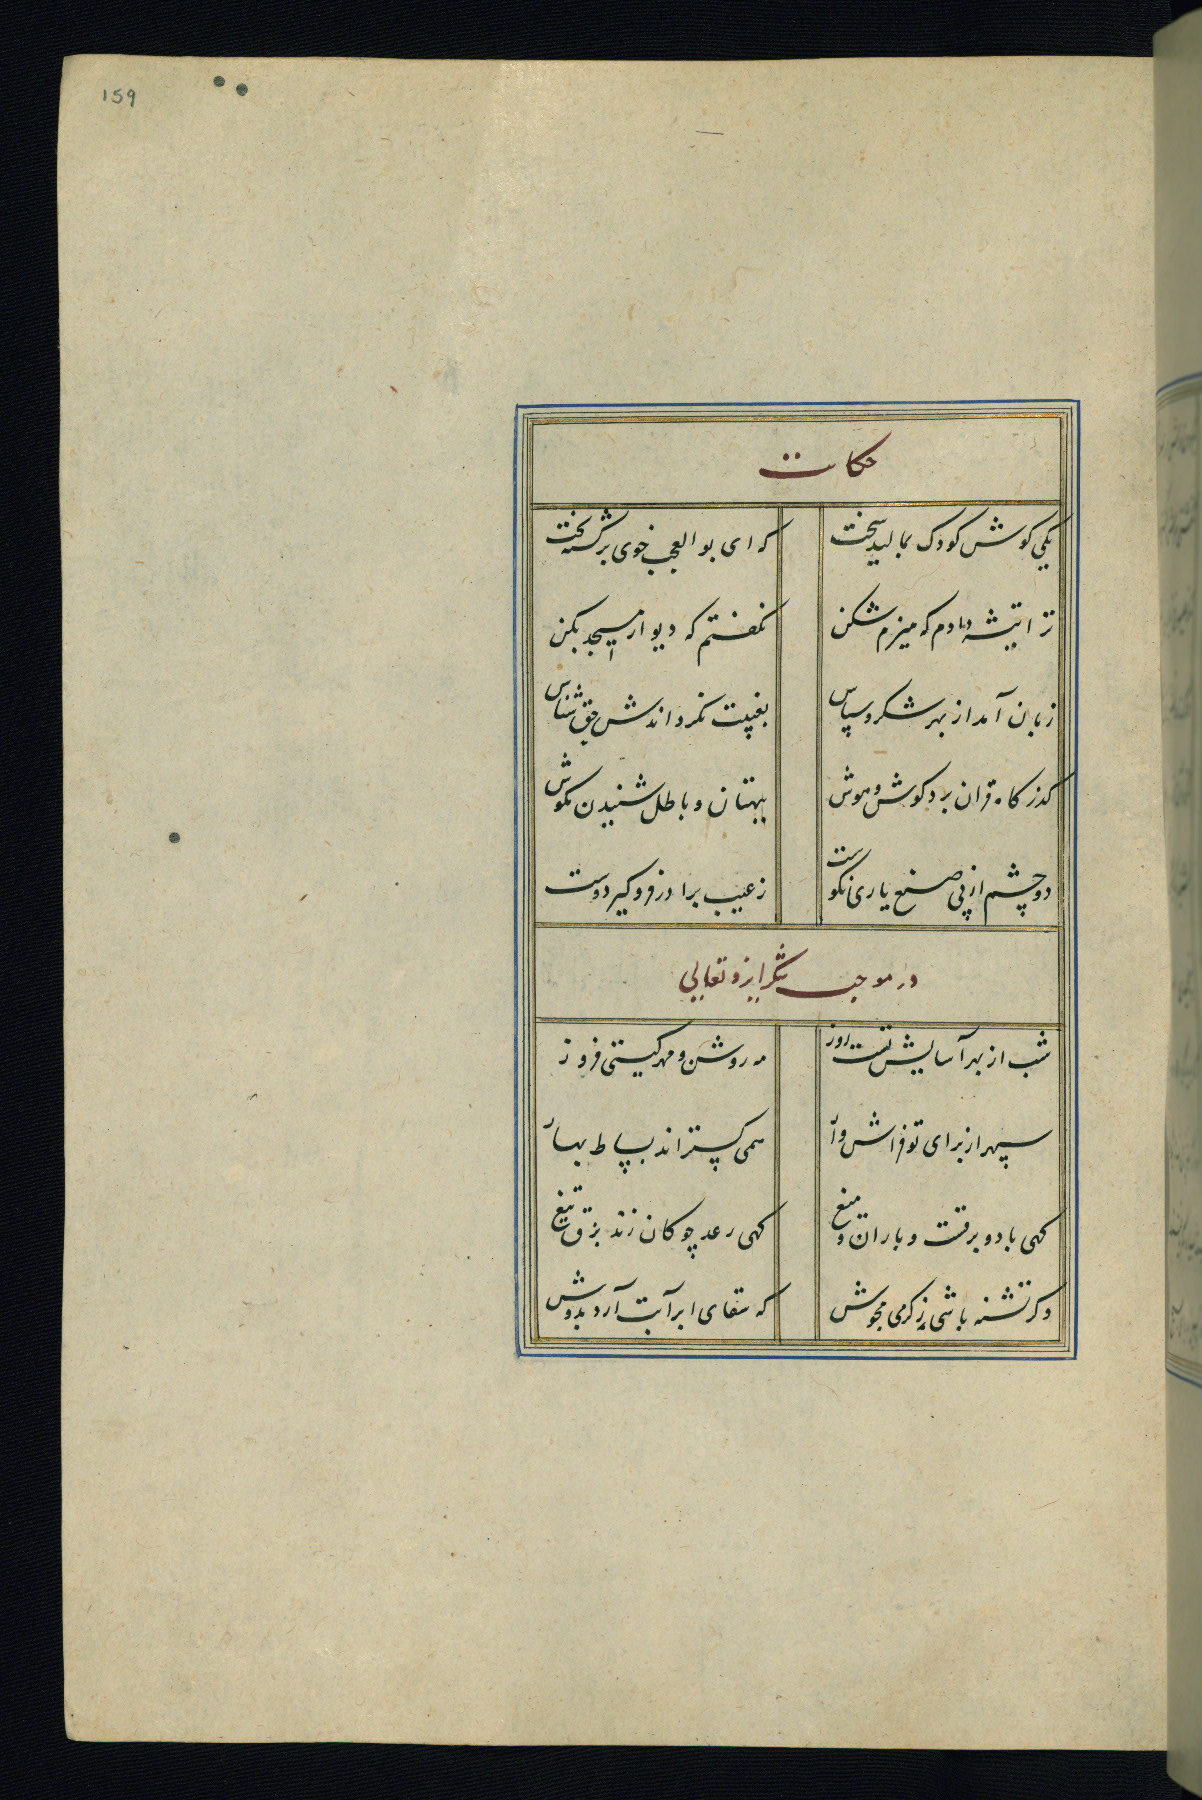 159
حکات
یکی کوش کودک بمالید سخت که ای بو العجب خوی برکشته بخت
ترا تیشه دادم که هیزم شکن نکفتم که دیوار مسجد بکن
زبان آمد از بهر شکر و سپاس بغیبت نکرداندش حق شناس
کذرکاه قران بود کوش و هوش ببهتان و باطل شنیدن مکوش
دو چشم از پی صنع باری نکوست ز عیب برادر فرو کیر و دوست
در موجب شکر ایزد تعالی
شب از بهر آسایش تست و روز مه روشن و مهر کیتی فروز
سپهر از برای تو فراش وار همی کستراند بساط بهار
کهی باد و برفست و باران و میغ کهی رعد چوکان زند برق تیغ
وکر تشنه باشی ز کرمی مجوش که سقای ابر آبت آرد بدوش